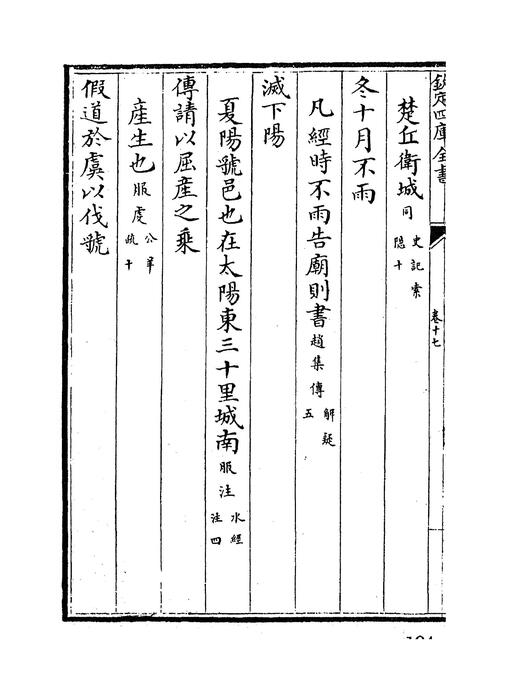 欽定四庫全書
卷十七
楚丘衛城同史記索隠十
冬十月不雨
凡經時不雨告廟則書趙集傳解疑五
滅下陽
夏陽虢邑也在太陽東三十里城南服注水經注四
傳請以屈産之乘
産生也服虔公羊疏十
假道於虞以伐虢